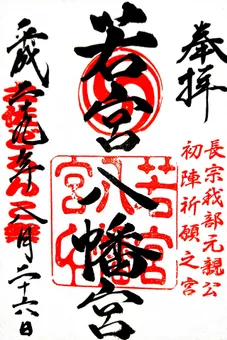 奉拝
長宗我部元親公
初陣祈願之宮
若宮八幡宮
若宮八幡宮印
平成二十九年八月二十六日